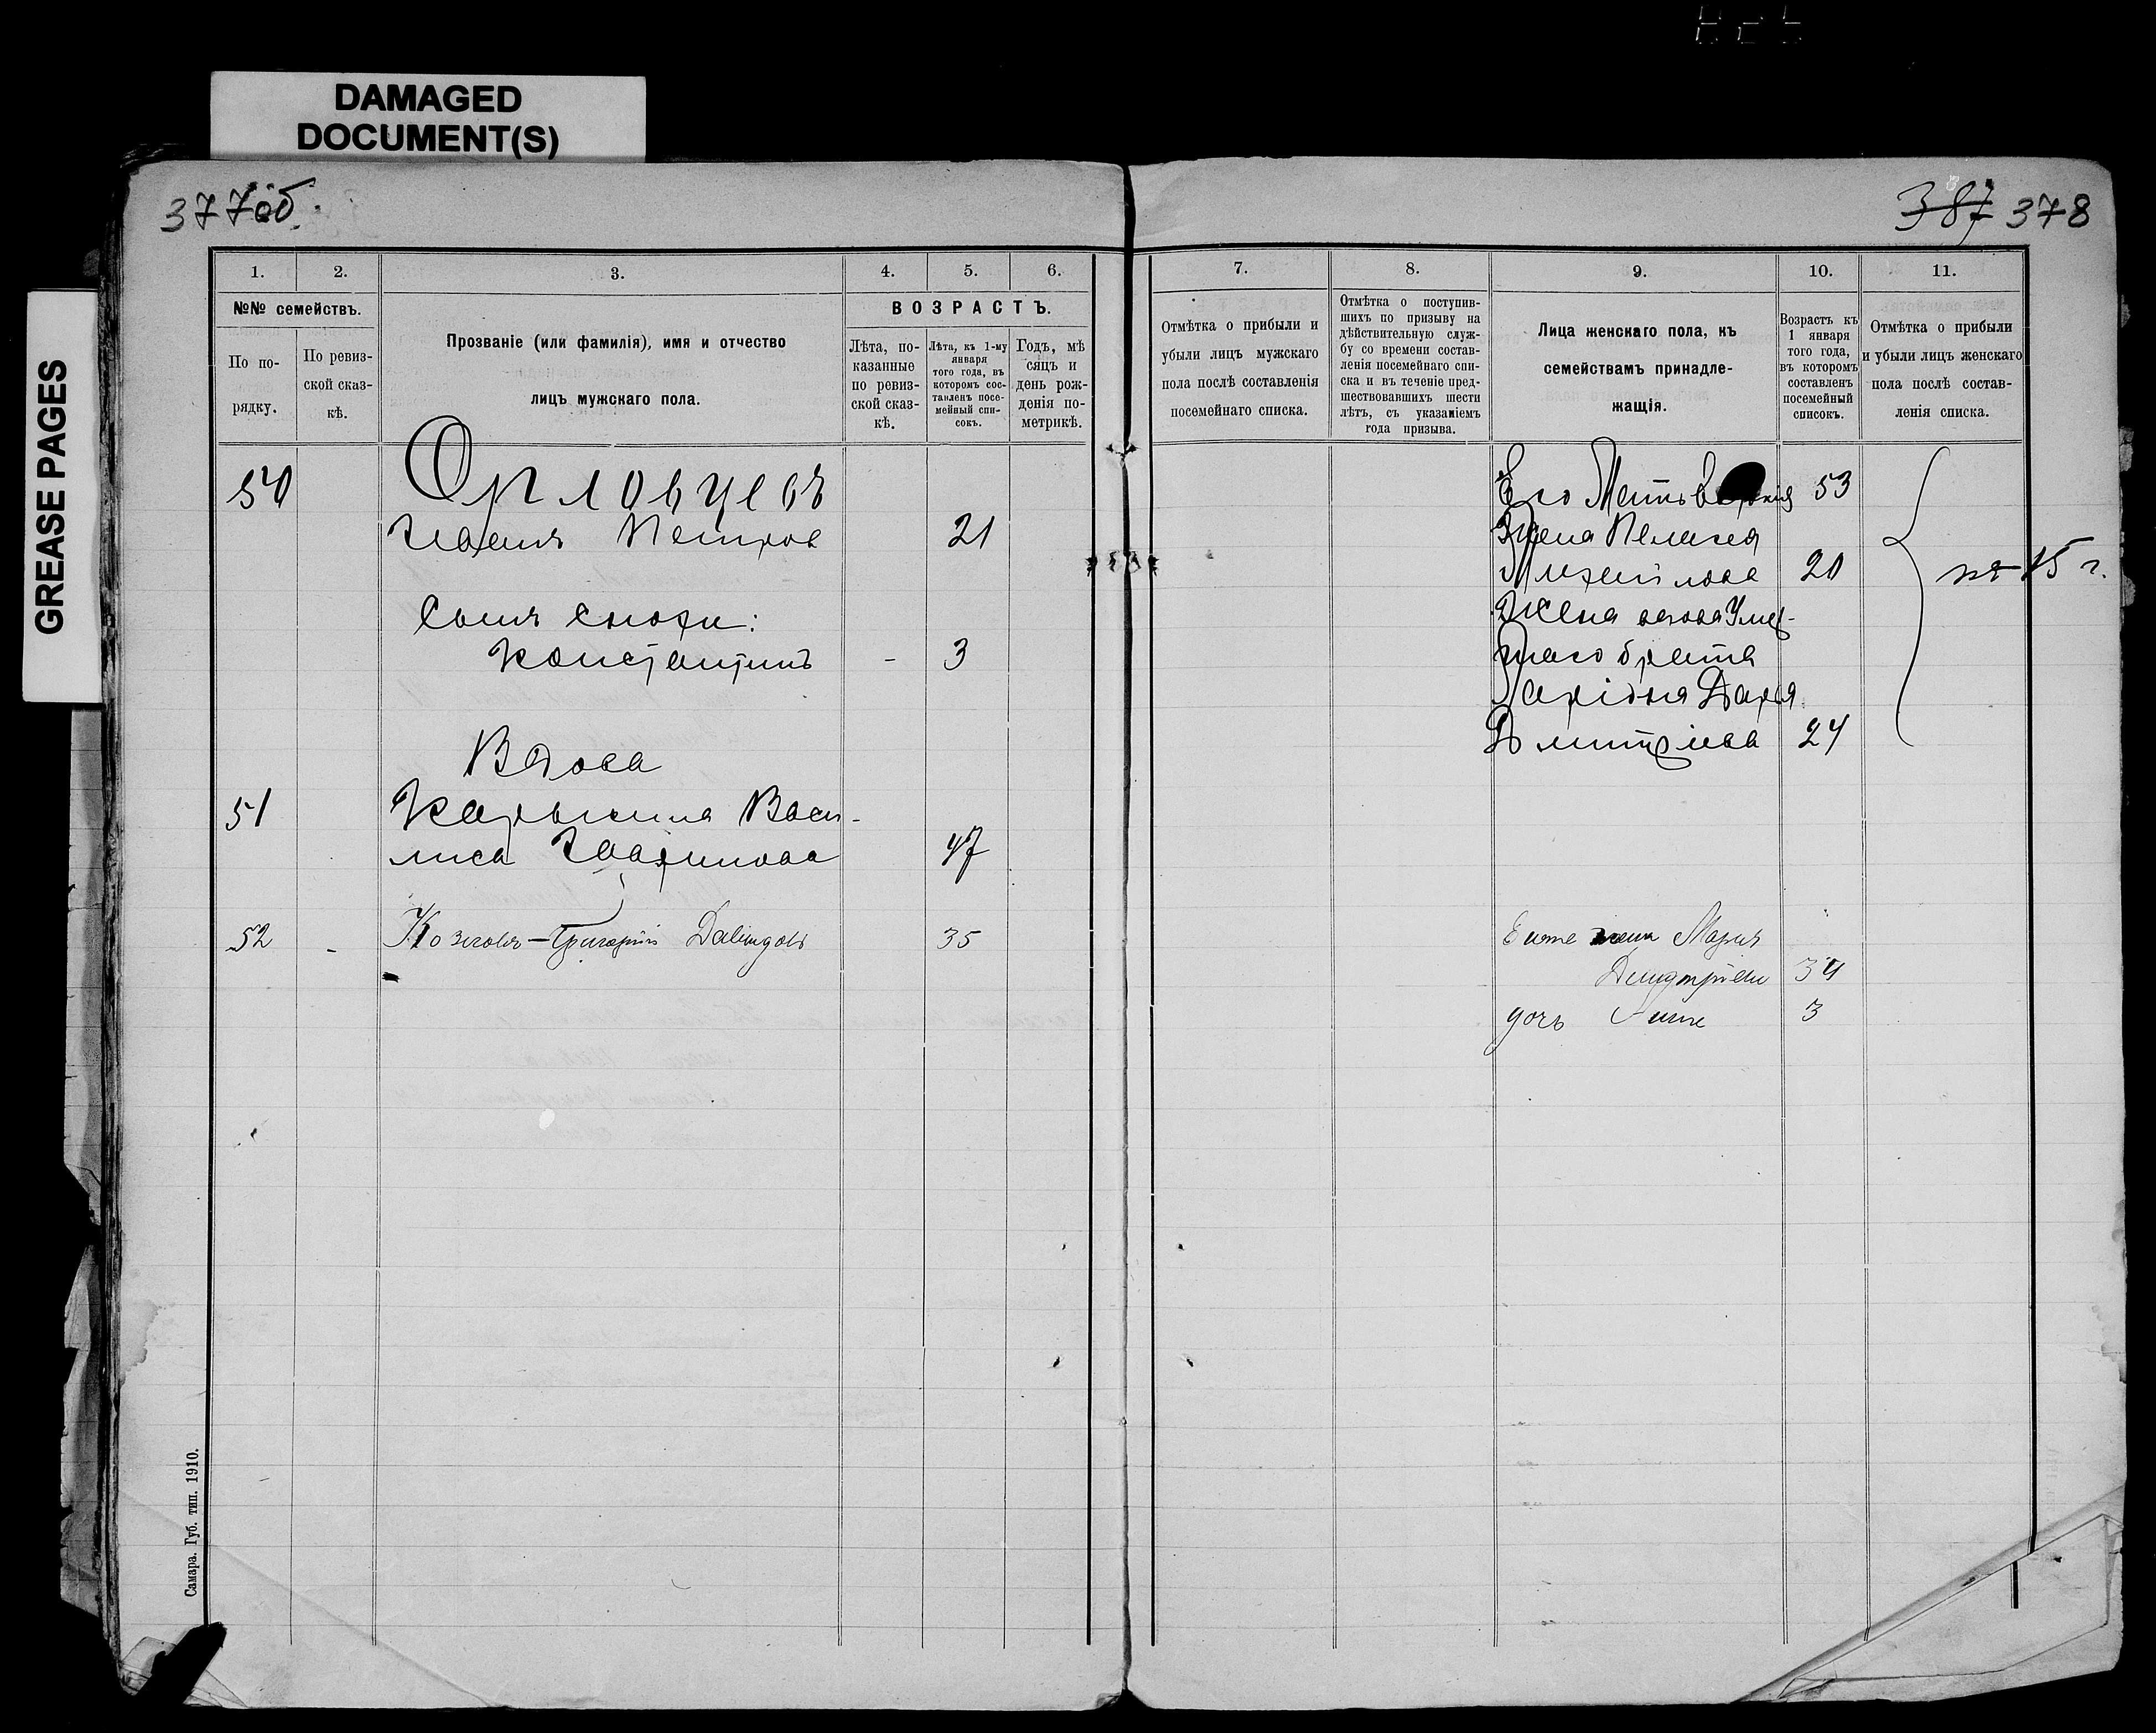 DAMAGED
DOCUMENT(S)
GREASE PAGES
377 об.
387 378
1.
2.
3.
4.
5.
6.
№№ семействъ.
По по-
рядку.
По ревиз-
ской сказ-
кѣ.
Прозваніе (или фамилія), имя и отчество
лицъ мужскаго пола.
ВОЗРАСТЪ.
Лѣта, по-
казанные
по ревиз-
ской сказ-
кѣ.
Лѣта, къ 1-му
января
того года, въ
которомъ сос-
тавленъ посе-
мейный спи-
сокъ.
Годъ, мѣ
сяцъ и
день рож-
денія по-
метрикѣ.
7.
8.
9.
10.
11.
Отмѣтка о прибыли и
убыли лицъ мужскаго
пола послѣ составленія
посемейнаго списка.
Отмѣтка о поступив-
шихъ по призыву на
дѣйствительную служ-
бу со времени состав-
ленія посемейнаго спи-
ска и въ теченіе пред-
шествовавшихъ шести
лѣтъ, съ указаніемъ
года призыва.
Лица женскаго пола, къ
семействамъ принадле-
жащія.
Возрастъ къ
1 января
того года,
въ которомъ
составленъ
посемейный
списокъ.
Отмѣтка о прибыли
и убыли лицъ женскаго
пола послѣ состав-
ленія списка.
50
Орловцевъ
Иванъ Петров
21
Сынъ снохи:
Константинъ - 3
Вдова
51
Карькина Васи-
лиса
47
52 - Козловъ - Григорій Давидовъ 35
Его Мать 53
Жена Пелагея
Михайлова 20
Жена
брата
Дарья
Дмитріева 24
15 г.
жена Марія
Димитріева 34
дочь Анна 3
Самара. Губ. тип. 1910.